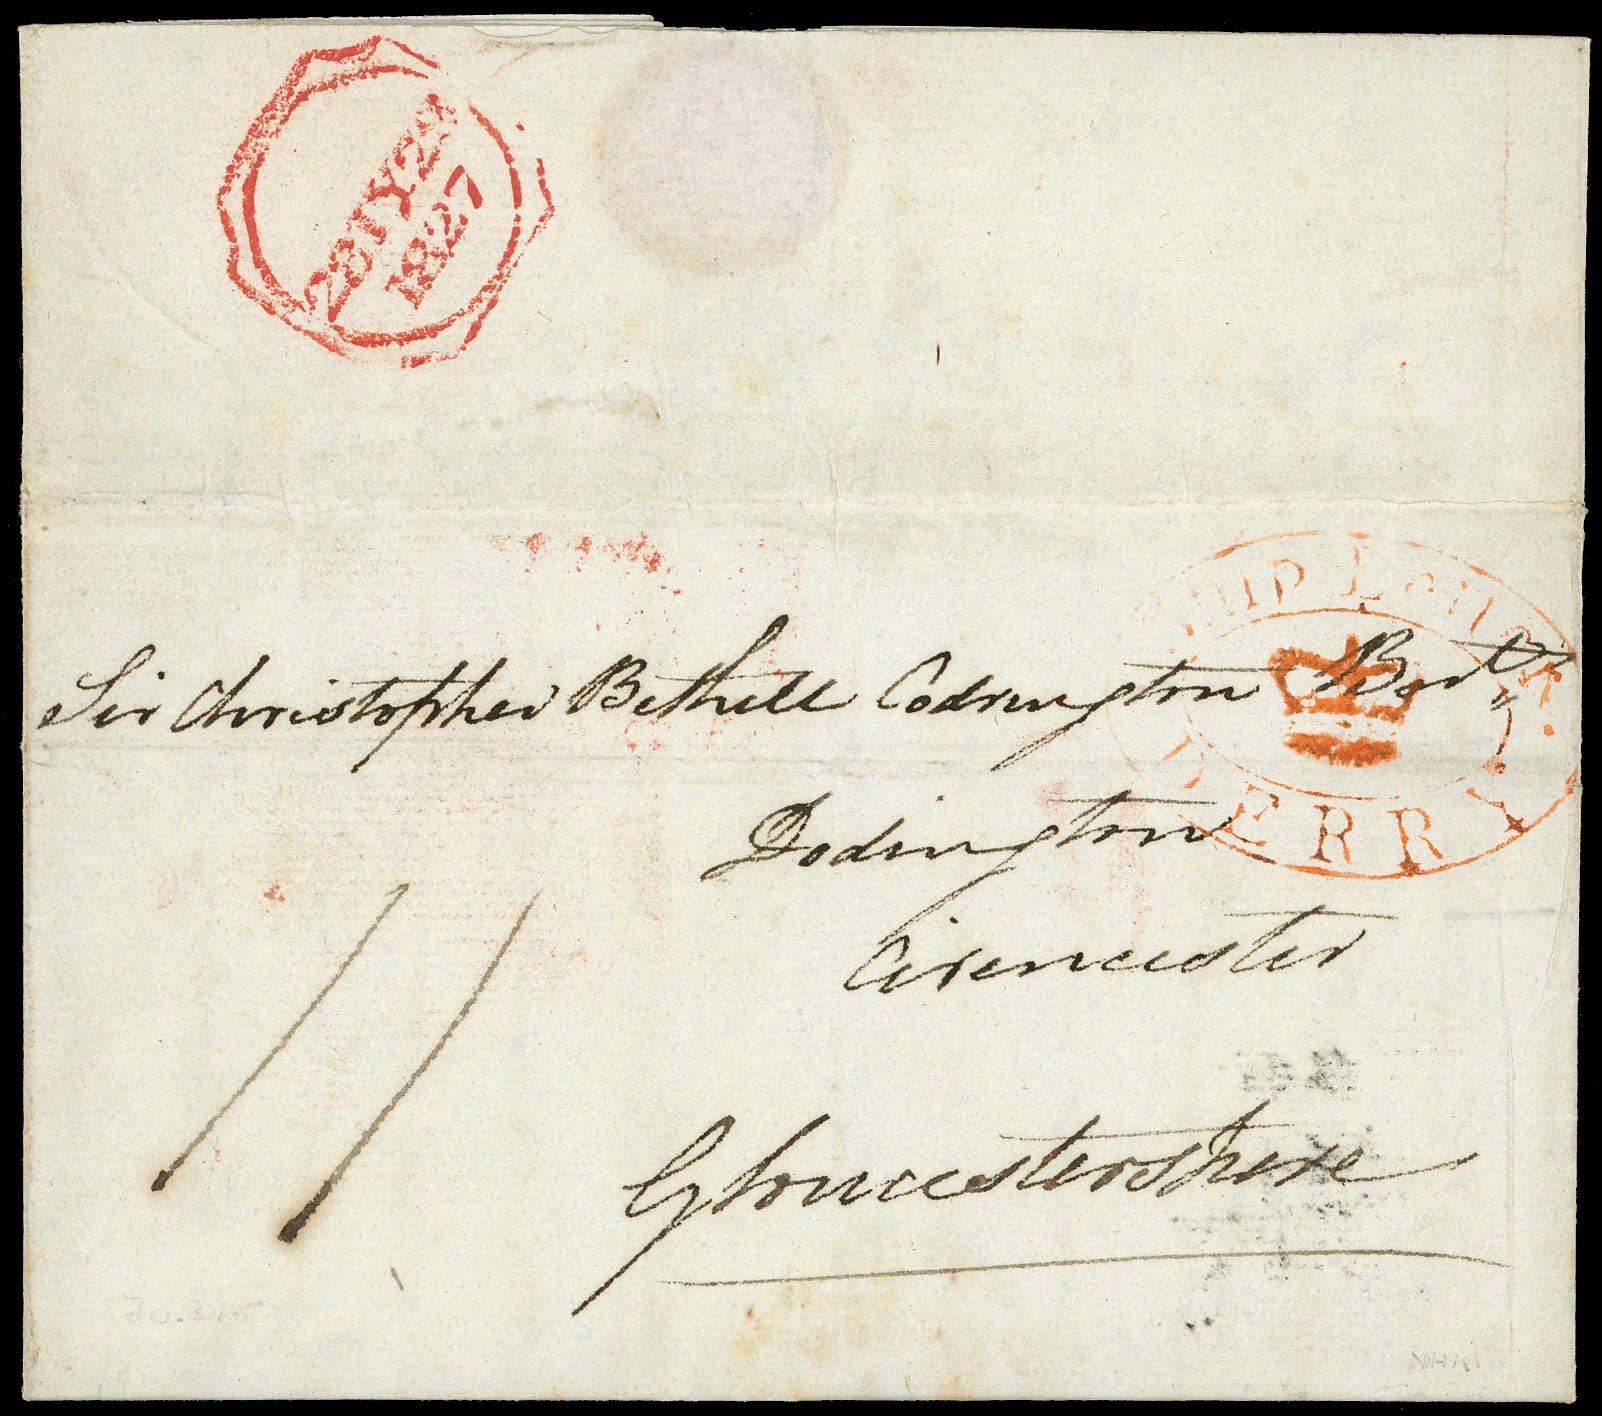 28 JY 28
1827
SHIP LONDON
DERRY
Sir Christopher Bethell Codrington Bart
Dodington
Cirencester
Gloucestershire
11